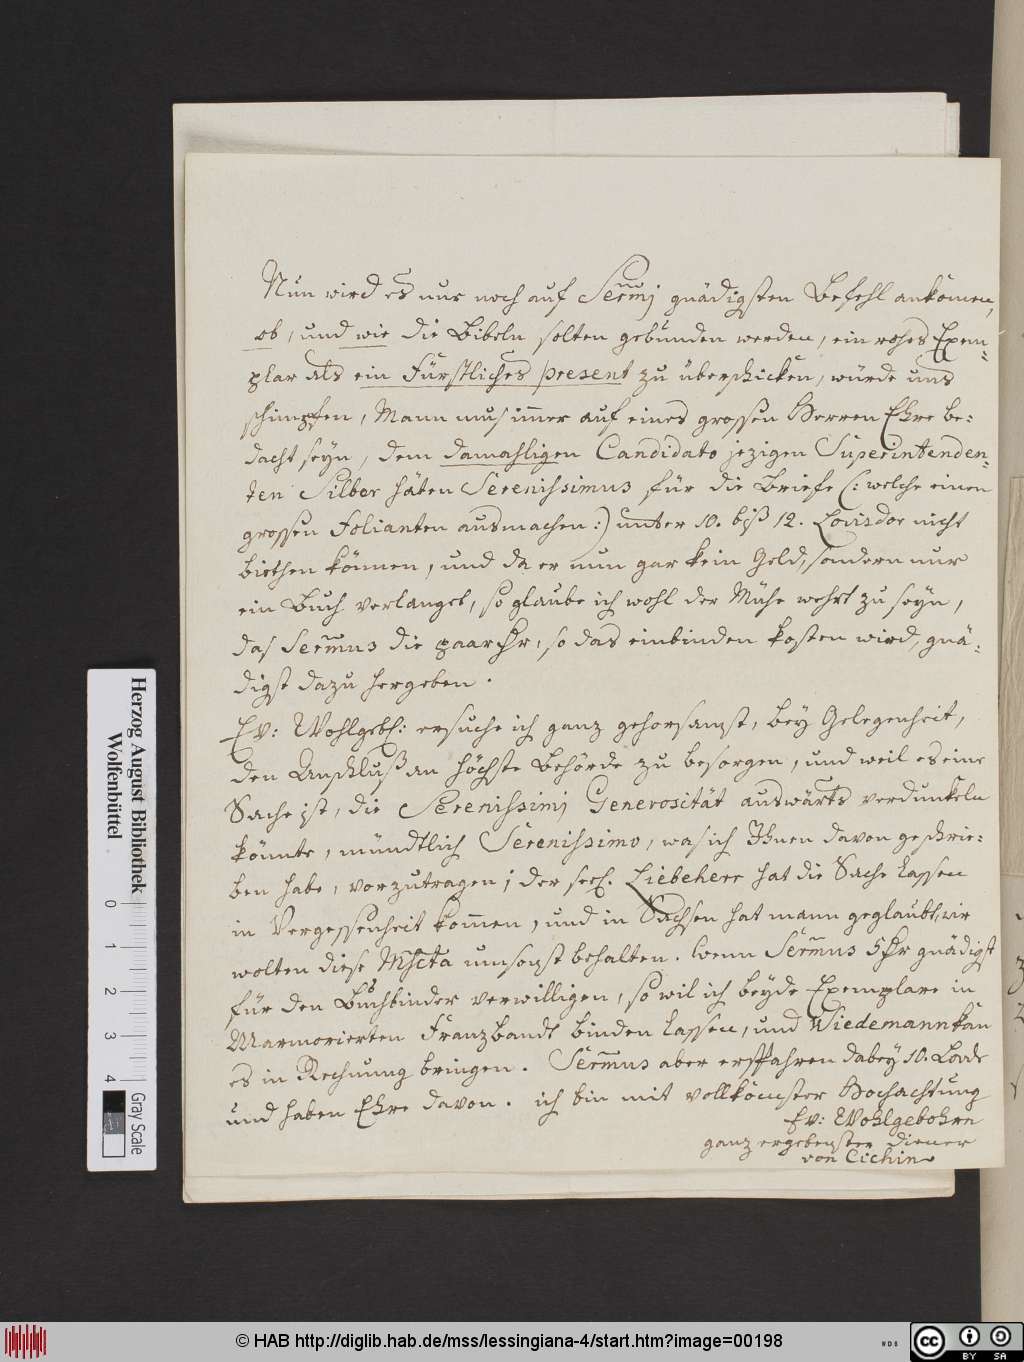 Nun wird es nur noch auf Sermj gnädigsten Befehl ankomen,
ob, und wie die Bibeln solten gebunden werden, ein rohes Exem-
plar als ein Fürstliches present zu überschicken, würde uns
schimpfen, Mann mus imer auf eines grossen Herren Ehre be-
dacht seyn, dem damahligen Candidato jezigen Superintenden-
ten Silber häten Serenissimus für die Briefe (: welche einen
grossen Folianten ausmachen :) unter 10. biß 12. Louisdor nicht
biethen können, und da er nun gar kein Geld, sondern nur
ein Buch verlanget, so glaube ich wohl der Mühe wehrt zu seyn,
das Sermus die paar thr, so das einbinden kosten wird, gnä-
digst dazu hergeben.
Ew: Wohlgeb: ersuche ich ganz gehorsamst, bey Gelegenheit,
den Anschluß an höchste Behörde zu besorgen, und weil es eine
Sache ist, die Serenissimj Generosität auswärts verdunkeln
könnte, mündtlich Serenissimo, was ich Ihnen davon geschrie-
ben habe, vorzutragen; der seel. Liebeherr hat die Sache lassen
in Vergessenheit komen, und in Sachsen hat mann geglaubt, wir
wolten diese Mscta umsonst behalten. Wenn Sermus 5 thr gnädigst
für den Buchbinder verwilligen, so wil ich beyde Exemplare in
Marmorierten Franzbandt binden lassen, und Wiedemann kan
es in Rechnung bringen. Sermus aber ersparen dabey 10. Louisdor
und haben Ehre davon. ich bin mit vollkomster Hochachtung
Ew: Wohlgebohrn
ganz ergebenster diener
von Cichin
Herzog August Bibliothek
Wolfenbüttel
0 1 2 3 4
Gray Scale
© HAB http://diglib.hab.de/mss/lessingiana-4/start.htm?image=00198
WDB
cc BY SA